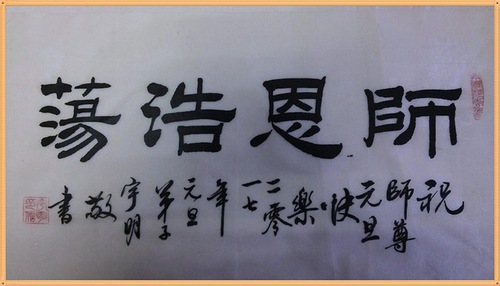 師恩浩蕩
祝
師尊
元旦
快
樂
二零
一七
年
元旦
弟子
宇明
敬
書